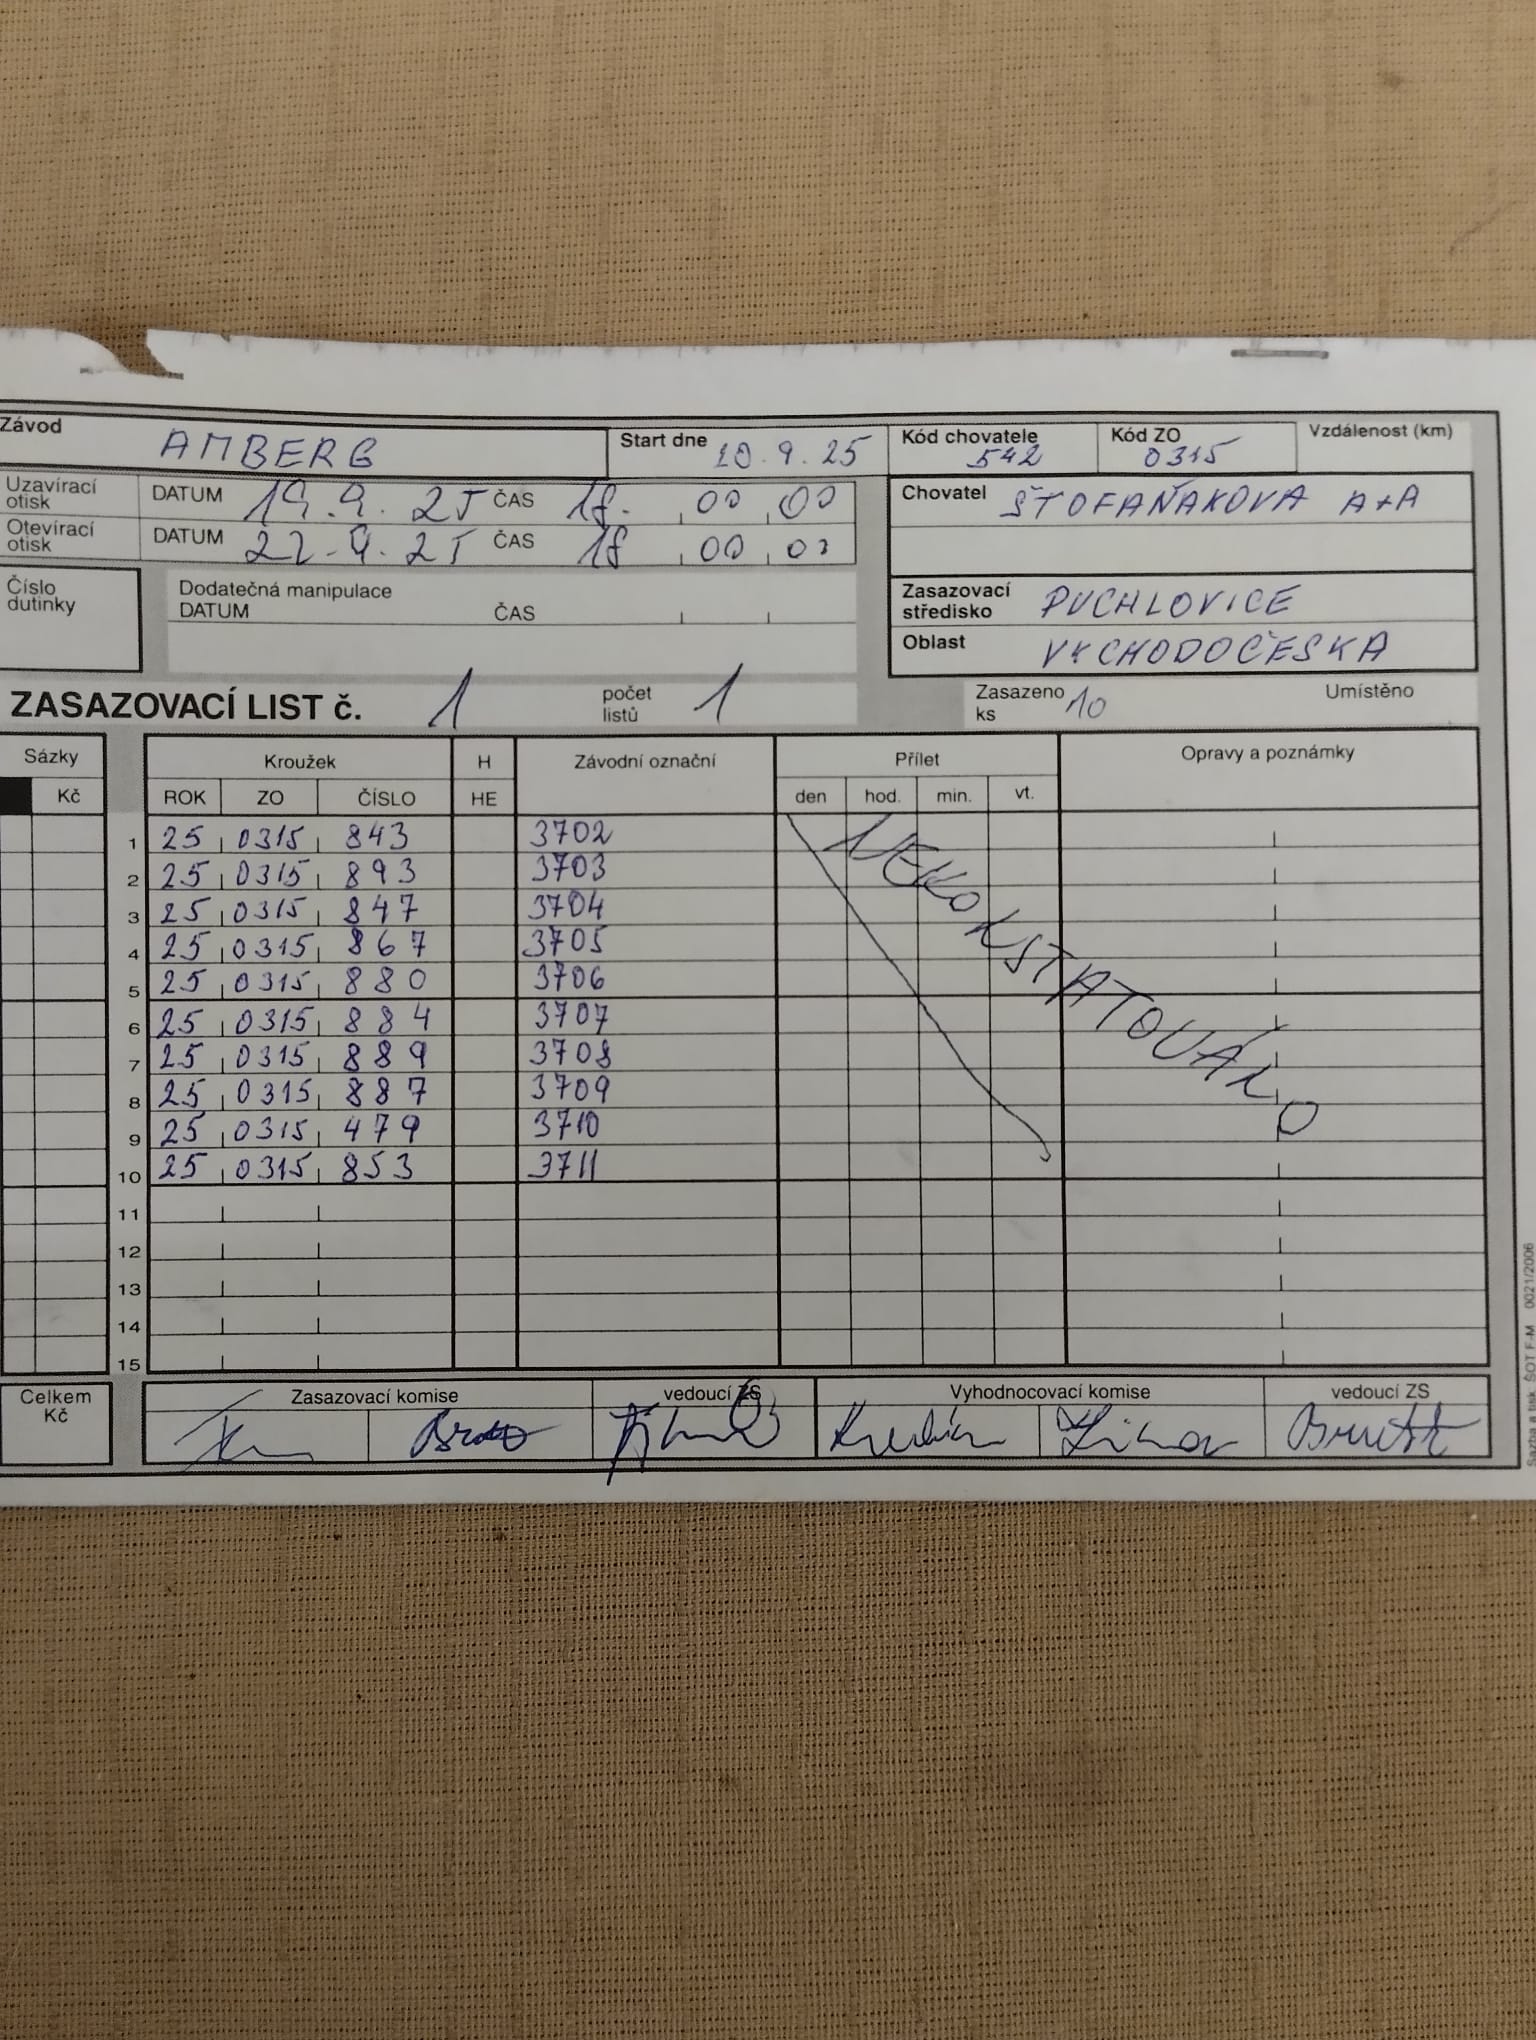 Závod AMBERG Start dne 20.9.25 Kód chovatele 542 Kód ZO 0315 Vzdálenost (km)
Uzavírací otisk DATUM 19.9.25 ČAS 18. 00 00
Otevírací otisk DATUM 22.9.25 ČAS 18 00 00
Chovatel ŠTOFAŇAKOVA A+A
Číslo dutinky
Dodatečná manipulace
DATUM ČAS
Zasazovací středisko PUCHLOVICE
Oblast VYCHODOČESKA
ZASAZOVACÍ LIST č. 1 počet listů 1 Zasazeno ks 10 Umístěno
Sázky Kroužek H Závodní označní Přílet Opravy a poznámky
Kč ROK ZO ČÍSLO HE den hod. min. vt.
1 25 0315 843 3702
2 25 0315 893 3703
3 25 0315 847 3704
4 25 0315 867 3705
5 25 0315 880 3706
6 25 0315 884 3707
7 25 0315 889 3708
8 25 0315 887 3709
9 25 0315 479 3710
10 25 0315 853 3711
NEKOKSTATOVÁLO
11
12
13
14
15
Celkem Kč
Zasazovací komise vedoucí ZS Vyhodnocovací komise vedoucí ZS
Sazba a tisk: ŠOT F-M 0021/2006